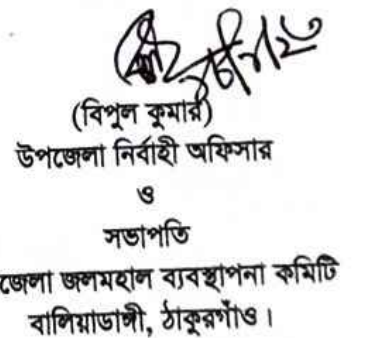 (বিপুল কুমার)
উপজেলা নির্বাহী অফিসার
ও
সভাপতি
জেলা জলমহাল ব্যবস্থাপনা কমিটি
বালিয়াডাঙ্গী, ঠাকুরগাঁও।